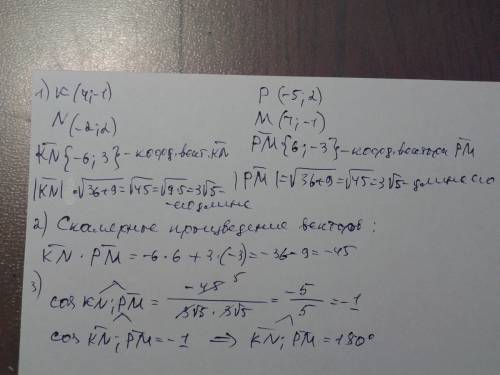 1) K (4;-1) P (-5; 2)
N (-2; 2) M (1; -1)
K̅N̅ {-6; 3} - коорд. вект. K̅N̅ P̅M̅ {6; -3} - коорд. вектора P̅M̅
|K̅N̅| = √36+9 = √45 = √9·5 = 3√5 - его длина |P̅M̅| = √36+9 = √45 = 3√5 - длина его
2) Скалярное произведение векторов:
K̅N̅ · P̅M̅ = -6·6 + 3·(-3) = -36-9 = -45
3) cos K̅N̅; P̅M̅ = -45 5 / 3√5 · 3√5 = -5 / 5 = -1
cos K̅N̅; P̅M̅ = -1 ⇒ K̅N̅; P̅M̅ = 180°